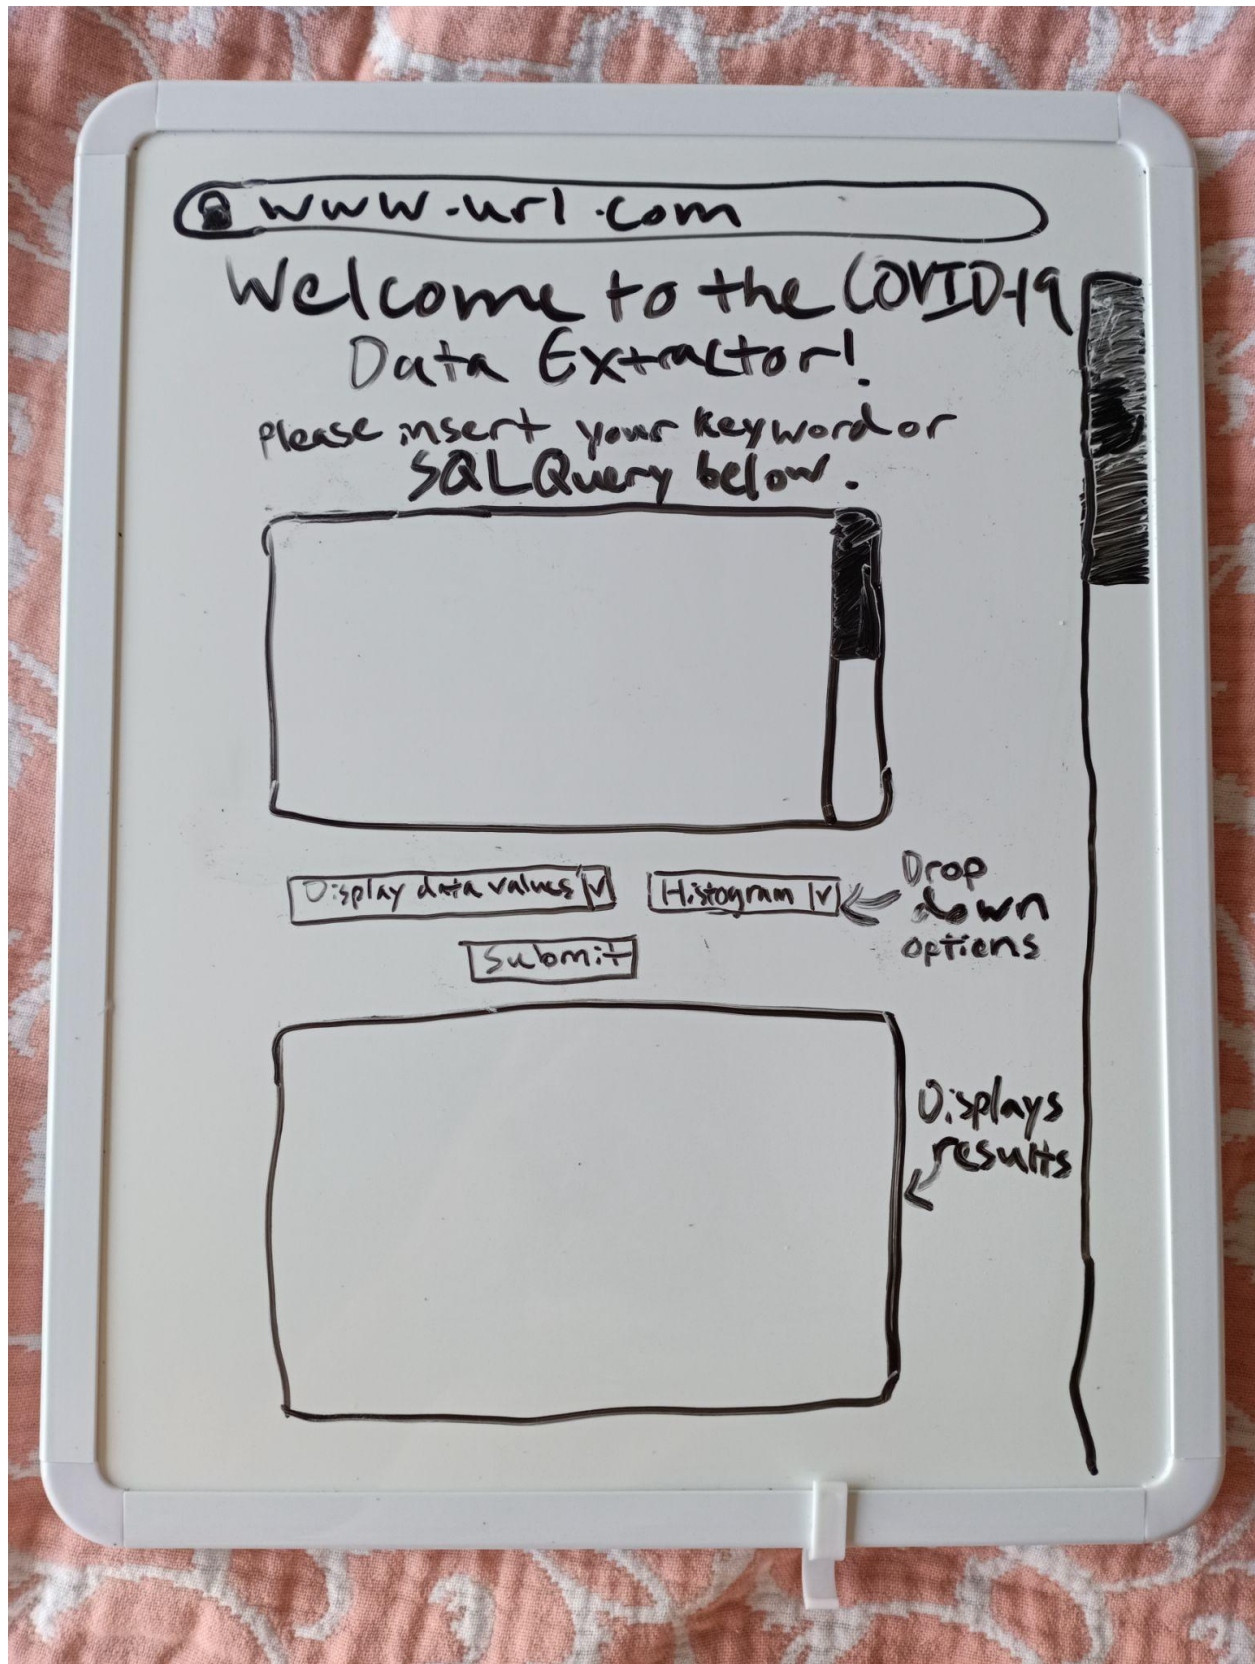 www.url.com
Welcome to the COVID-19
Data Extractor!
please insert your keyword or
SQL Query below.
Display data values v
Histogram v
Drop
down
options
Submit
Displays
results